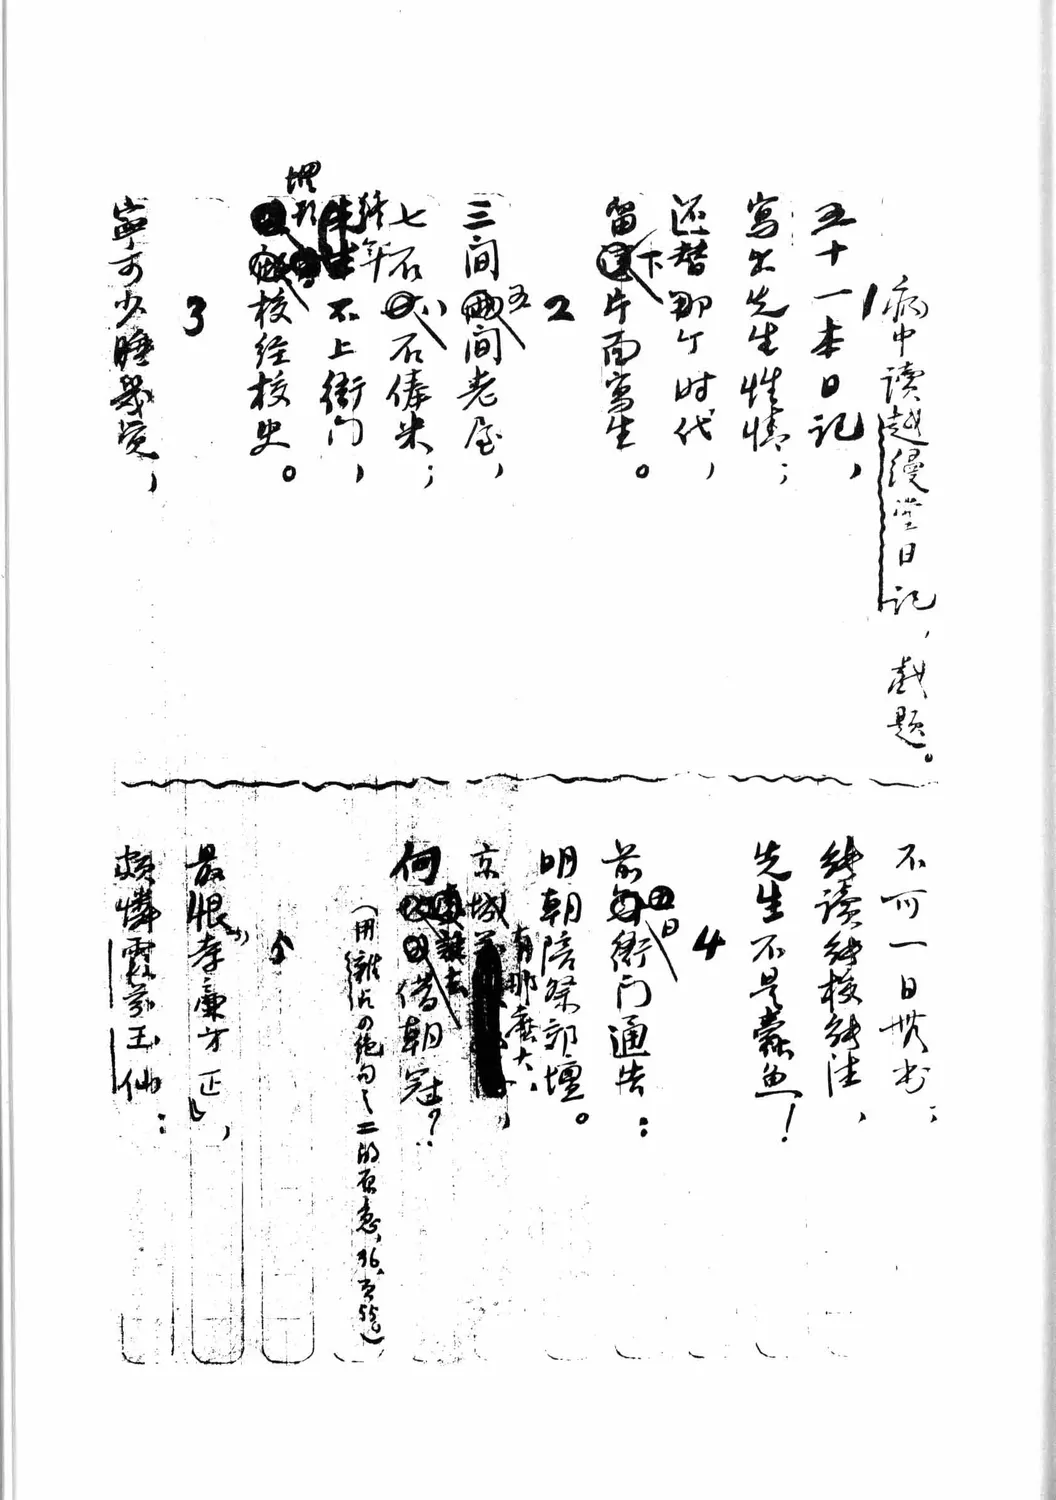 病中读越缦堂日记，戏题。
1
五十一本日记，
写出先生性情；
还替那个时代，
留下片面写生。
2
三间五间老屋，
七石八石俸米；
终年不上衙门，
埋头校经校史。
3
宁可少睡几觉，
不可一日无书；
能读能校能注，
先生不是蠹鱼！
4
前日衙门通告：
明朝陪祭郊壇。
京城有那麽大，
何去借朝冠？
（用雜占の绝句之二的原意，
5
最恨「孝廉方正」，
頗憐霞芬玉仙：